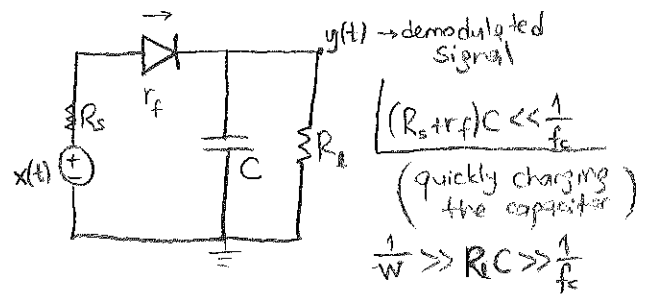 y(t) → demodulated
signal
r_f
R_s
(R_s+r_f)C << 1/f_c
x(t)
C
R_l
(quickly charging
the capacitor)
1/W >> R_lC >> 1/f_c